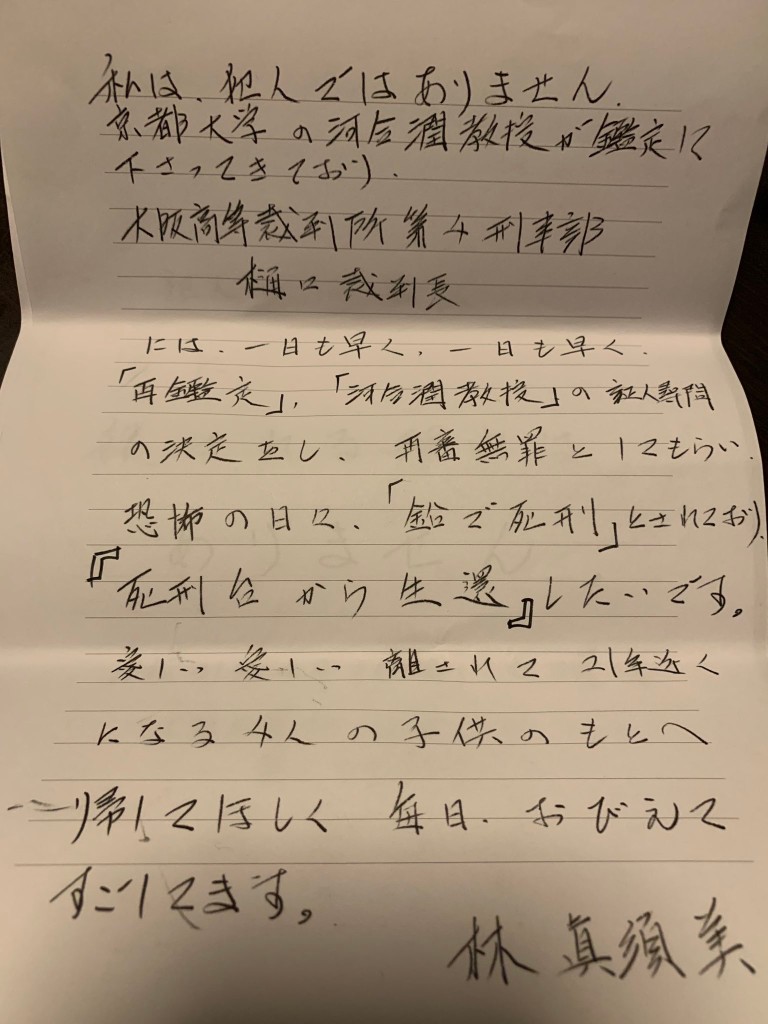 私は、犯人ではありません.
京都大学の河合潤教授が鑑定に
下さってきており.
大阪高等裁判所第4刑事部
樋口裁判長
には、一日も早く、一日も早く.
「再鑑定」,「河合潤教授」の証人尋問
の決定をし、再審無罪としてもらい.
恐怖の日に、「鉛で死刑」とされており.
『死刑台から生還』したいです。
愛しい愛しい離されて21年近く
になる4人の子供のもとへ
帰してほしく毎日.おびえて
すごしてます。
林眞須美